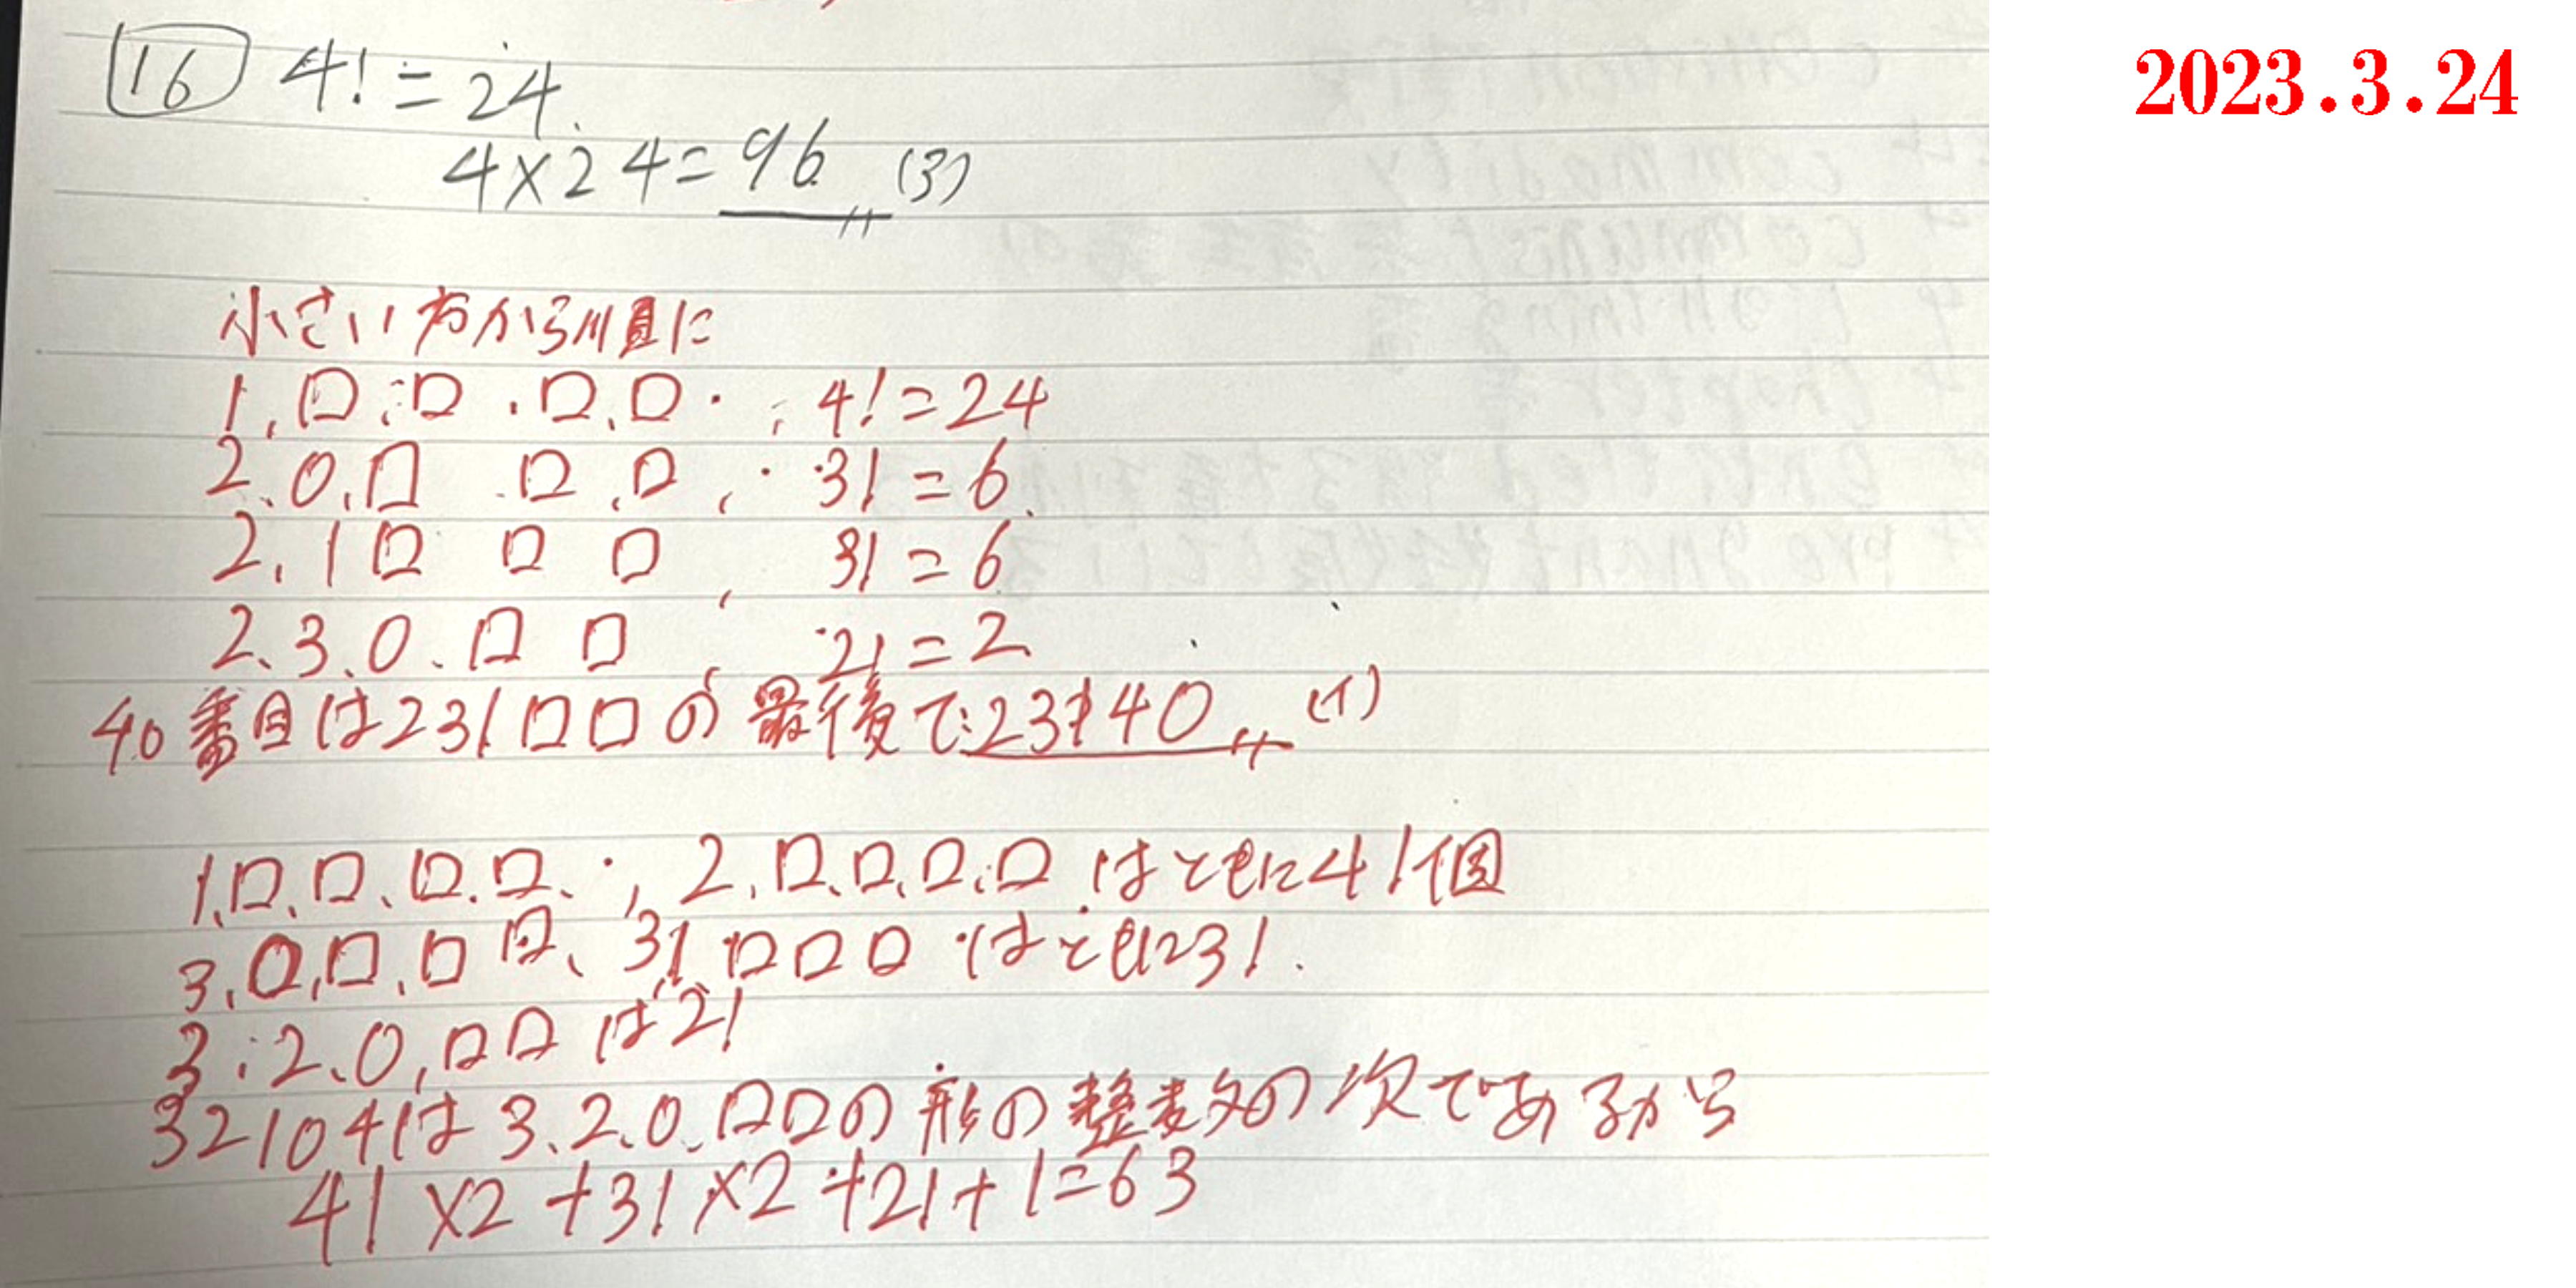 2023.3.24
16 4! = 24
4×24=96 (ア)
小さい方から順に
1,□,□,□,□, 4!=24
2,0,□,□,□, 3!=6
2,1□□□, 3!=6
2,3,0,□□, 2!=2
40番目は231□□の最後で23140 (イ)
1,□,□,□,□, 2,□,□,□,□はともに4!個
3,0,□,□□、31□□□はともに3!
3,2,0,□□は2!
32104は3,2,0,□□の形の整数の次であるから
4!×2+3!×2+2!+1=63